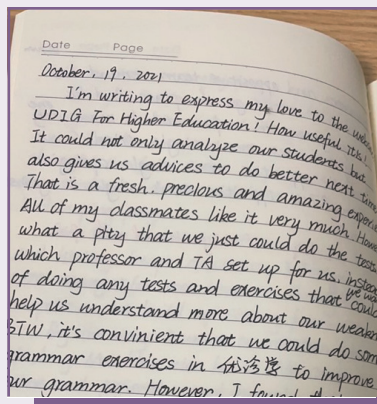 Date Page
October, 19, 2021
I'm writing to express my love to the
UDIG For Higher Education! How useful it is!
It could not only analyze our students but
also gives us advices to do better next time
That is a fresh, precious and amazing
All of my classmates like it very much.
what a pity that we just could do the tests
which professor and TA set up for us, instead
of doing any tests and exercises that we could
help us understand more about our
BTW, it's convinient that we could do som
grammar exercises in 优诊学 to improve
ur grammar. However, I found